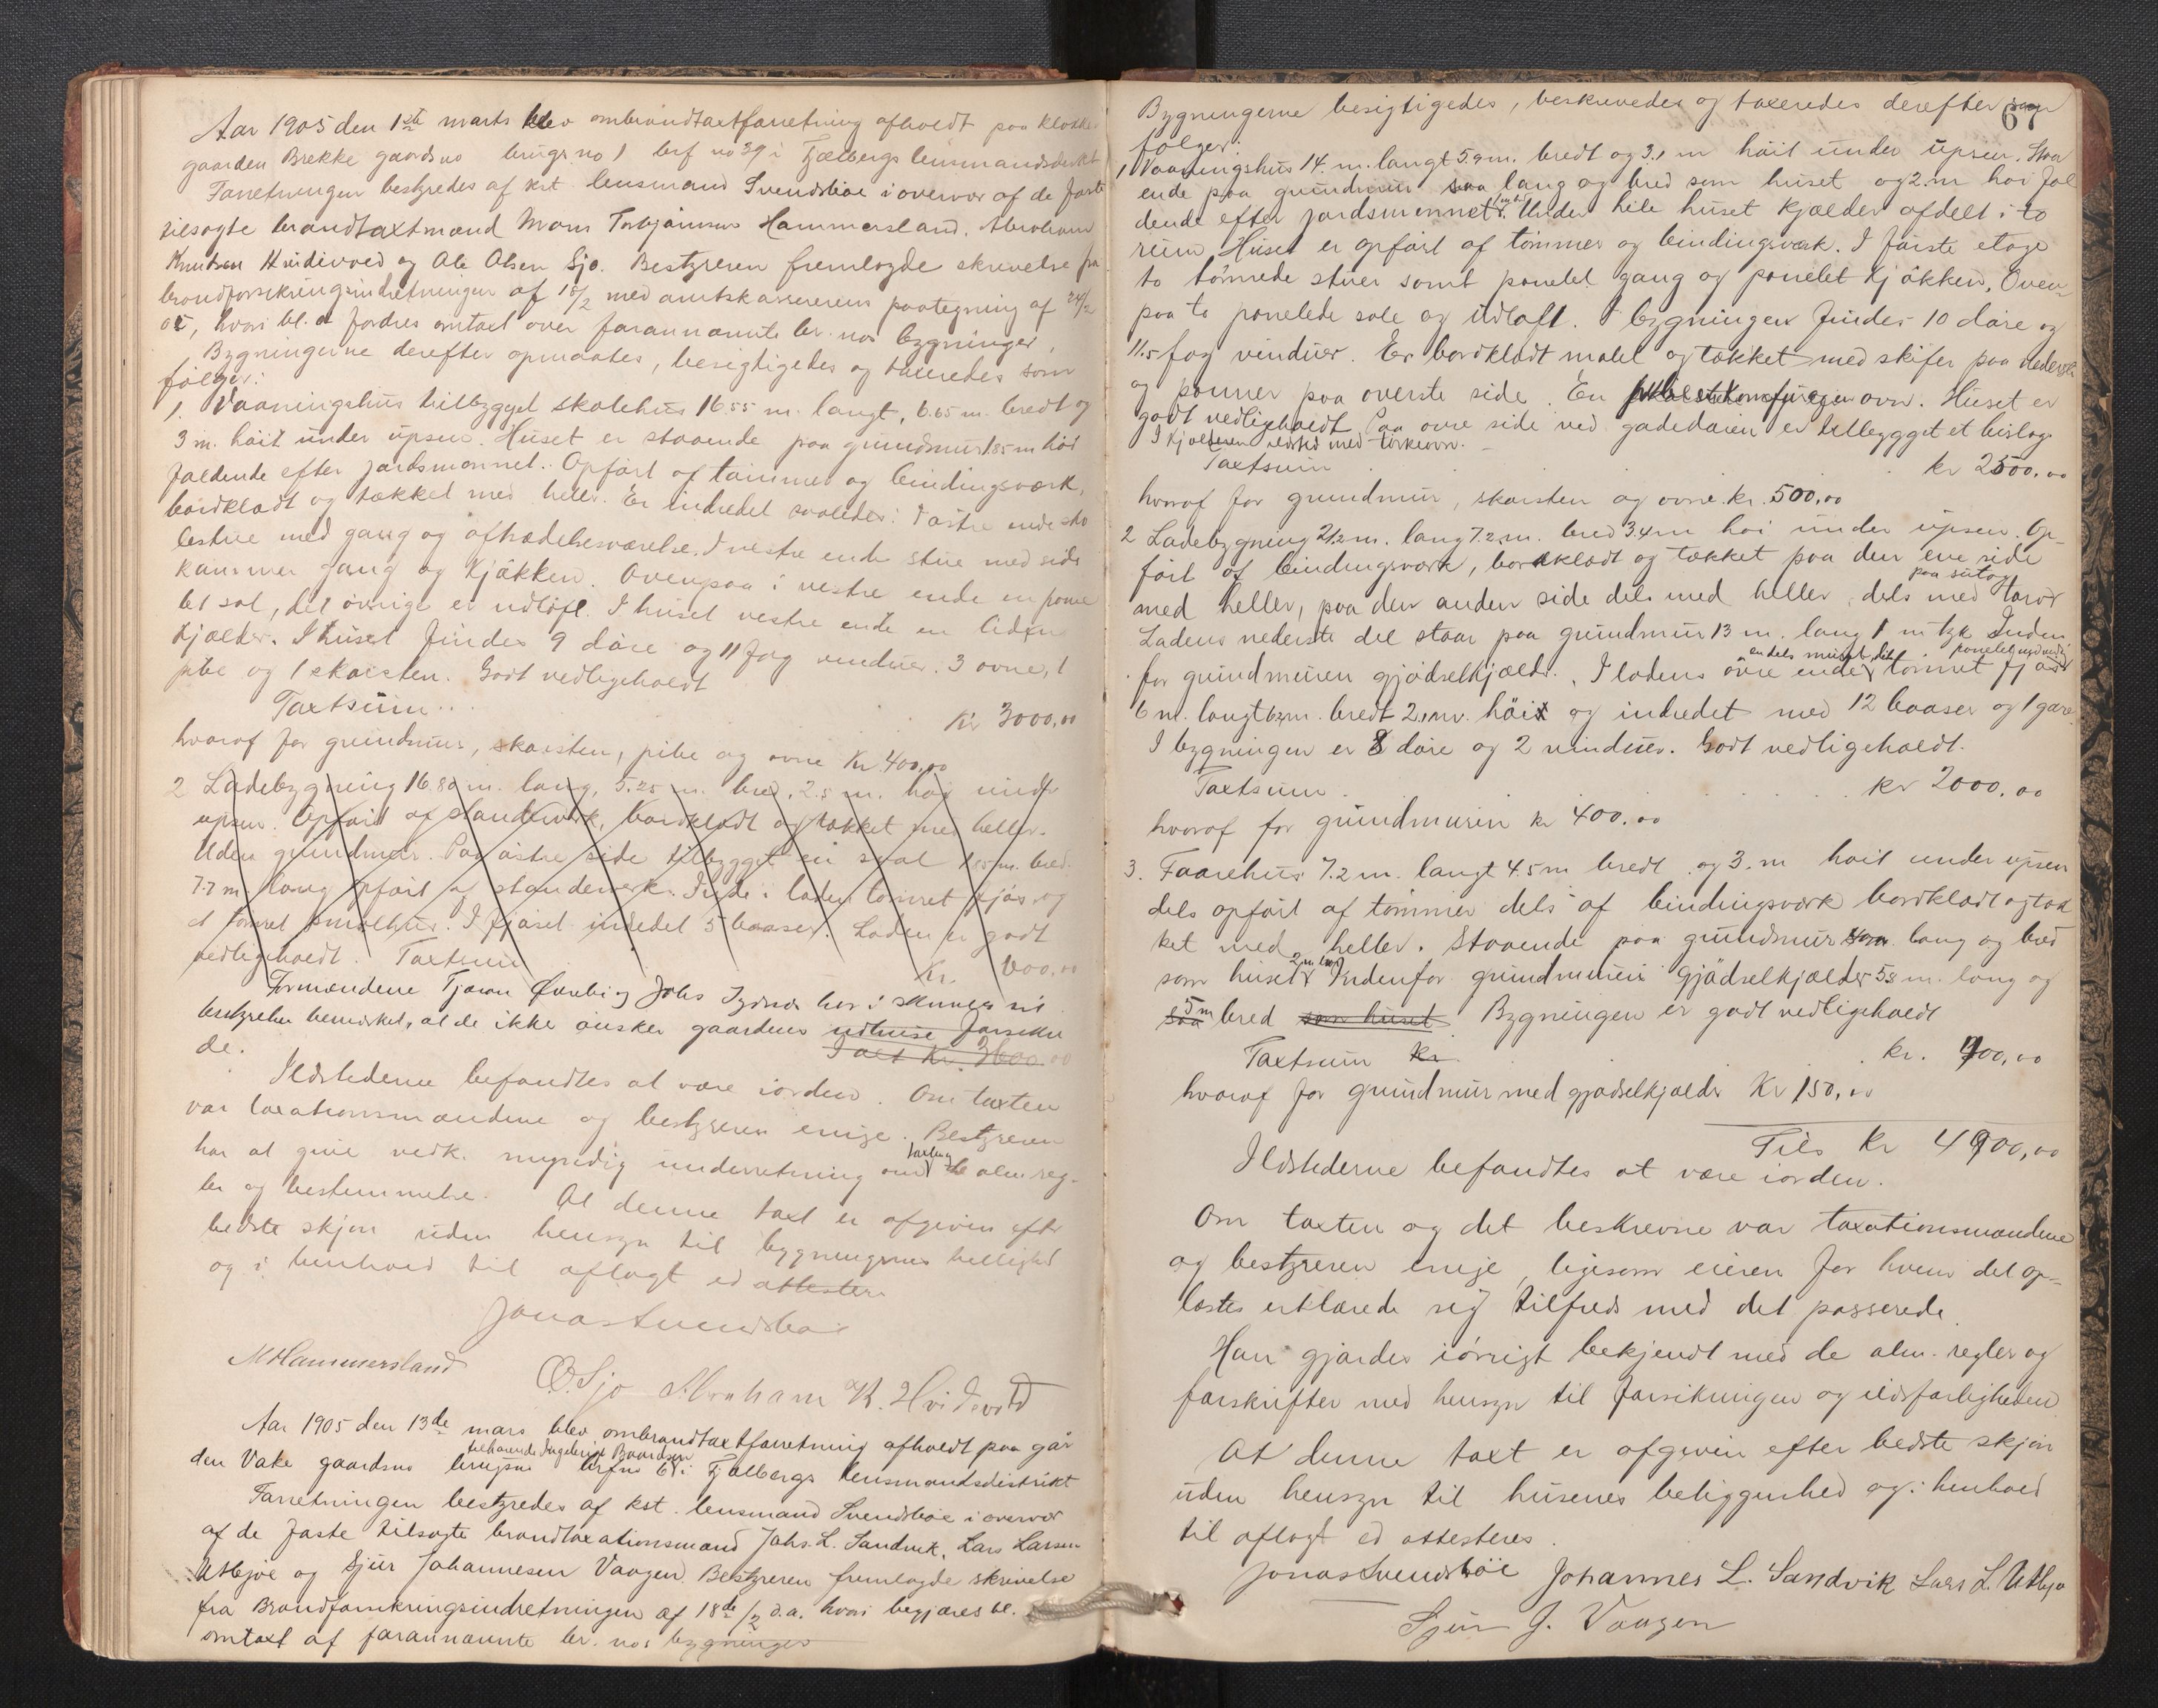 Aar 1905 den 1ste marts blev ombrandtaxtforretning afholdt paa klokker
gaarden Brekke gaardsno brugs no 1 brf no 39 i Fjælbergs lensmandsdistrikt
Forretningen bestyredes af kst. lensmand Svendsbøe i overvær af de faste
tilsagte brandtaxtmænd Mons Torbjørnsen Hammersland, Abraham
Knutsen Hvidevold og Ole Olsen Sjo. Bestyreren fremlagde skrivelse fra
brandforsikringsindretningen af 18/2 med amtskassererens paategning af 24/2
05, hvori bl. a fordres omtaxt over forannævnte br. nos bygninger.
Bygningerne derefter opmaaltes, besigtigedes og taxeredes som
følger:
1. Vaaningshus tilbygget skolehus 16.55 m. langt, 6.65 m. bredt og
3 m. høit under upsen. Huset er staaende paa grundmur 1.85 m høi
faldende efter jordsmonnet. Opført af tømmer og bindingsværk,
bordklædt og tækket med heller. Er indredet saaledes: I østre ende sko
lestue med gang og aftrædelsesværelse. I vestre ende stue med side
kammer gang og kjøkken. Ovenpaa i vestre ende en pane
let sal, det øvrige er udloft. I huset vestre ende en liden
kjælder. I huset findes 9 døre og 11 fag vinduer. 3 ovne, 1
pibe og 1 skorsten. Godt vedligeholdt
Taxtsum . . . Kr 3000,00
hvoraf for grundmur, skorsten, pibe og ovne Kr. 400,00
2 Ladebygning 16.80 m. lang, 5.25 m. bred, 2.5 m. høi under
upsen. Opført af standerværk, bordklædt og tækket med heller.
Uden grundmur. Paa østre side tilbygget en sval 1.85 m. bred.
7.7 m. lang opført af standerværk. Inde i laden tømret fjøs og
et tømret smalehus. I fjøset indredet 5 baaser. Laden er godt
vedligeholdt. Taxtsum Kr. 600,00
Formændene Tjeran Øvrebi og Johs har i skrivelse til
bestyrelsen bemærket, at de ikke ønsker gaardens udhuse forsikre
de. I alt Kr. 3600.00
Ildstederne befandtes at være i orden. Om taxten
var taxationsmændene og bestyreren enige. Bestyreren
har at give vedk. myndig underretning om taxten & de alm. reg-
ler og bestemmelser. At denne taxt er afgiven efter
bedste skjøn uden hensyn til bygningernes beliggenhed
og i henhold til aflagt ed attesteres
Jonas Svendsbøe
M Hammersland O. O. Sjo Abraham K. Hvidevold
Aar 1905 den 13de mars blev ombrandtaxtforretning afholdt paa går
tilhørende Ingebrigt Baardsen
den Vake gaardsno brugsno brfno 61 i Fjælbergs lensmandsdistrikt
Forretningen bestyredes af kst. lensmand Svendsbøe i overvær
af de faste tilsagte brandtaxationsmænd Johs. L. Sandvik, Lars Larsen
Utbjoe og Sjur Johannesen Vaagen. Bestyreren fremlagde skrivelse
fra Brandforsikringsindretningen af 18de/2 d.a. hvori begjæres bl. a.
omtaxt af forannævnte br. nos bygninger
67
Bygningerne besigtigedes, beskrevedes og taxeredes derefter som
følger:
1 Vaaningshus 14. m. langt 5.9 m. bredt og 3.1 m høit under upsen. Staa
ende paa grundmur saa lang og bred som huset og 2. m høi fal
dende efter jordsmonnet. Under hele huset kjælder afdelt i to
rum. Huset er opført af tømmer og bindingsværk. I første etage
to tømrede stuer samt panelet gang og panelet kjøkken. Oven-
paa to panelede sale og udloft. I bygningen findes 10 døre og
11.5 fag vinduer. Er bordklædt malet og tækket med skifer paa nederste
og panner paa øverste side. En skorsten komfur og en ovn. Huset er
godt vedligeholdt. Paa øvre side ved gadedøren er tilbygget et bislag.
I kjælderen ildsted med tørkeovn.
Taxtsum . . . kr 2500.00
hvoraf for grundmur, skorsten og ovne kr. 500,00
2 Ladebygning 21,2 m. lang 7.2 m. bred 3.4 m høi under upsen. Op-
ført af bindingsværk, bordklædt og tækket paa den ene side
paa sutag
med heller, paa den anden side dels med heller, dels med torv
Ladens nederste del staar paa grundmur 13 m. lang 1 m tyk Inden
en dels muret, dels panelet
for grundmuren gjødselkjælder. I ladens øvre ende tømret fjøs
6 m. langt 6,2 m. bredt 2,1 m. høit og indredet med 12 baaser og 1 gare
I bygningen er 8 døre og 2 vinduer. Godt vedligeholdt.
Taxtsum . . . kr 2000.00
hvoraf for grundmuren kr 400.00
3. Faarehus 7.2 m. langt 4.5 m bredt og 3. m høit under upsen
dels opført af tømmer dels af bindingsværk bordklædt og tæk
ket med heller. Staaende paa grundmur saa lang og bred
2 m høi
som huset. Indenfor grundmuren gjødselkjælder 5.8 m. lang og
saa 5 m bred som huset Bygningen er godt vedligeholdt
Taxtsum kr. . . kr. 400,00
hvoraf for grundmur med gjødselkjælder Kr 150,00
Tils Kr 4900,00
Ildstederne befandtes at være i orden.
Om taxten og det beskrevne var taxationsmændene
og bestyreren enige, ligesom eieren for hvem det op-
læstes erklærede sig tilfreds med det passerede.
Han gjørdes iøvrigt bekjendt med de alm. regler og
forskrifter med hensyn til forsikringen og ildsfarligheden
At denne taxt er afgiven efter bedste skjøn
uden hensyn til husenes beliggenhed og i henhold
til aflagt ed attesteres.
Jonas Svendsbøe Johannes L. Sandvik Lars L. Utbjo
Sjur J. Vaagen